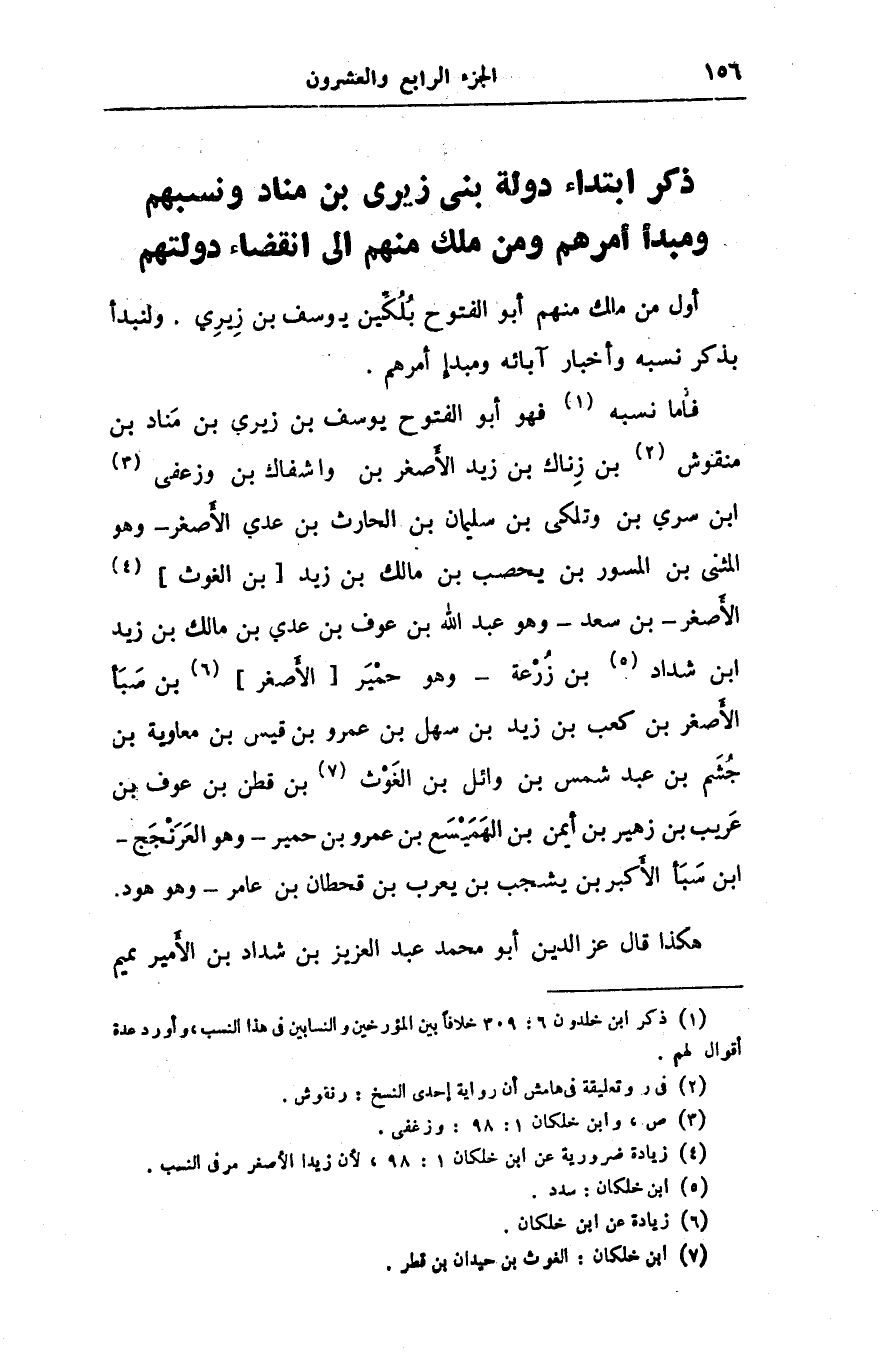 ١٥٦ الجزء الرابع والعشرون
ذكر ابتداء دولة بنى زيرى بن مناد ونسبهم
ومبدأ أمرهم ومن ملك منهم الى انقضاء دولتهم
أول من ملك منهم أبو الفتوح بُلُكِّين يوسف بن زِيرِي . ولنبدأ
بذكر نسبه وأخبار آبائه ومبدإ أمرهم .
فأما نسبه (١) فهو أبو الفتوح يوسف بن زيري بن مَناد بن
منقوش (٢) بن زِناك بن زيد الأَصغر بن واشفاك بن وزعفى (٣)
ابن سري بن وتلكى بن سليمان بن الحارث بن عدي الأَصغر – وهو
المثنى بن المسور بن يحصب بن مالك بن زيد [ بن الغوث ] (٤)
الأَصغر – بن سعد – وهو عبد الله بن عوف بن عدي بن مالك بن زيد
ابن شداد (٥) بن زُرْعة – وهو حمْيَر [ الأَصغر ] (٦) بن سَبَأ
الأَصغر بن كعب بن زيد بن سهل بن عمرو بن قيس بن معاوية بن
جُشَم بن عبد شمس بن وائل بن الغَوْث (٧) بن قطن بن عوف بن
عَريب بن زهير بن أَيمن بن الهَمَيْسَع بن عمرو بن حمير – وهو العَرَنْجَج –
ابن سَبَأ الأَكبر بن يشجب بن يعرب بن قحطان بن عامر – وهو هود.
هكذا قال عز الدين أبو محمد عبد العزيز بن شداد بن الأَمير تميم
(١) ذكر ابن خلدون ٦ : ٣٠٩ خلافاً بين المؤرخين والنسابين فى هذا النسب ، وأورد عدة
أقوال لهم .
(٢) فى ر وتعليقة فى هامش أن رواية إحدى النسخ : رنقوش .
(٣) ص ، وابن خلكان ١ : ٩٨ : وزغفى .
(٤) زيادة ضرورية عن ابن خلكان ١ : ٩٨ ، لأن زيدا الأصغر مر فى النسب .
(٥) ابن خلكان : سدد .
(٦) زيادة عن ابن خلكان .
(٧) ابن خلكان : الغوث بن حيدان بن قطر .